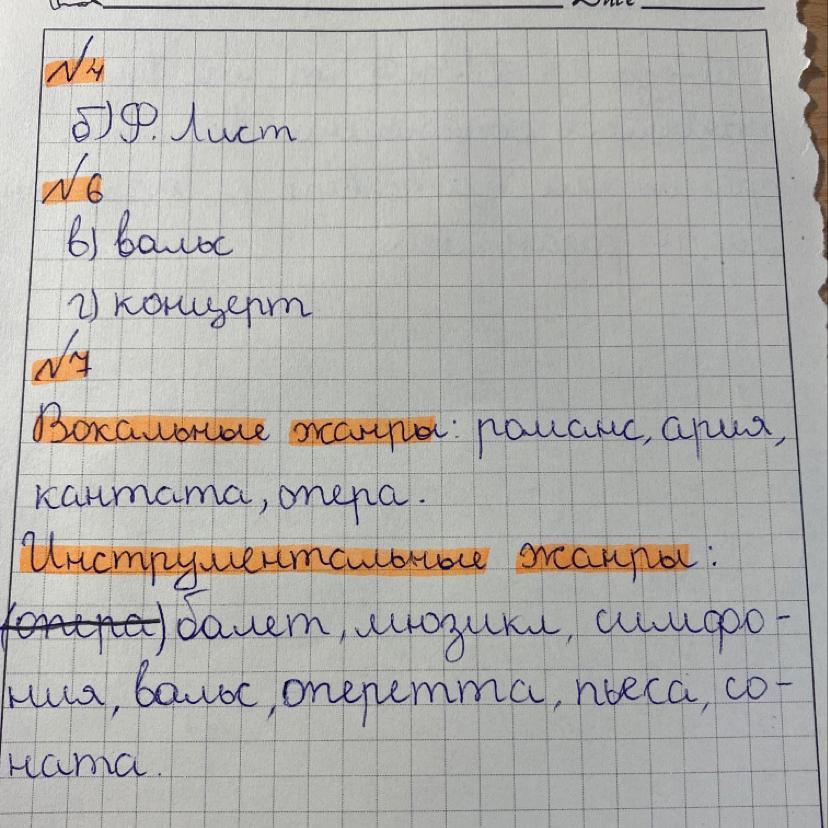 №4
б) Ф. Лист
№6
в) вальс
г) концерт
№7
Вокальные жанры: романс, ария,
кантата, опера.
Инструментальные жанры:
(опера) балет, мюзикл, симфо-
ния, вальс, оперетта, пьеса, со-
ната.